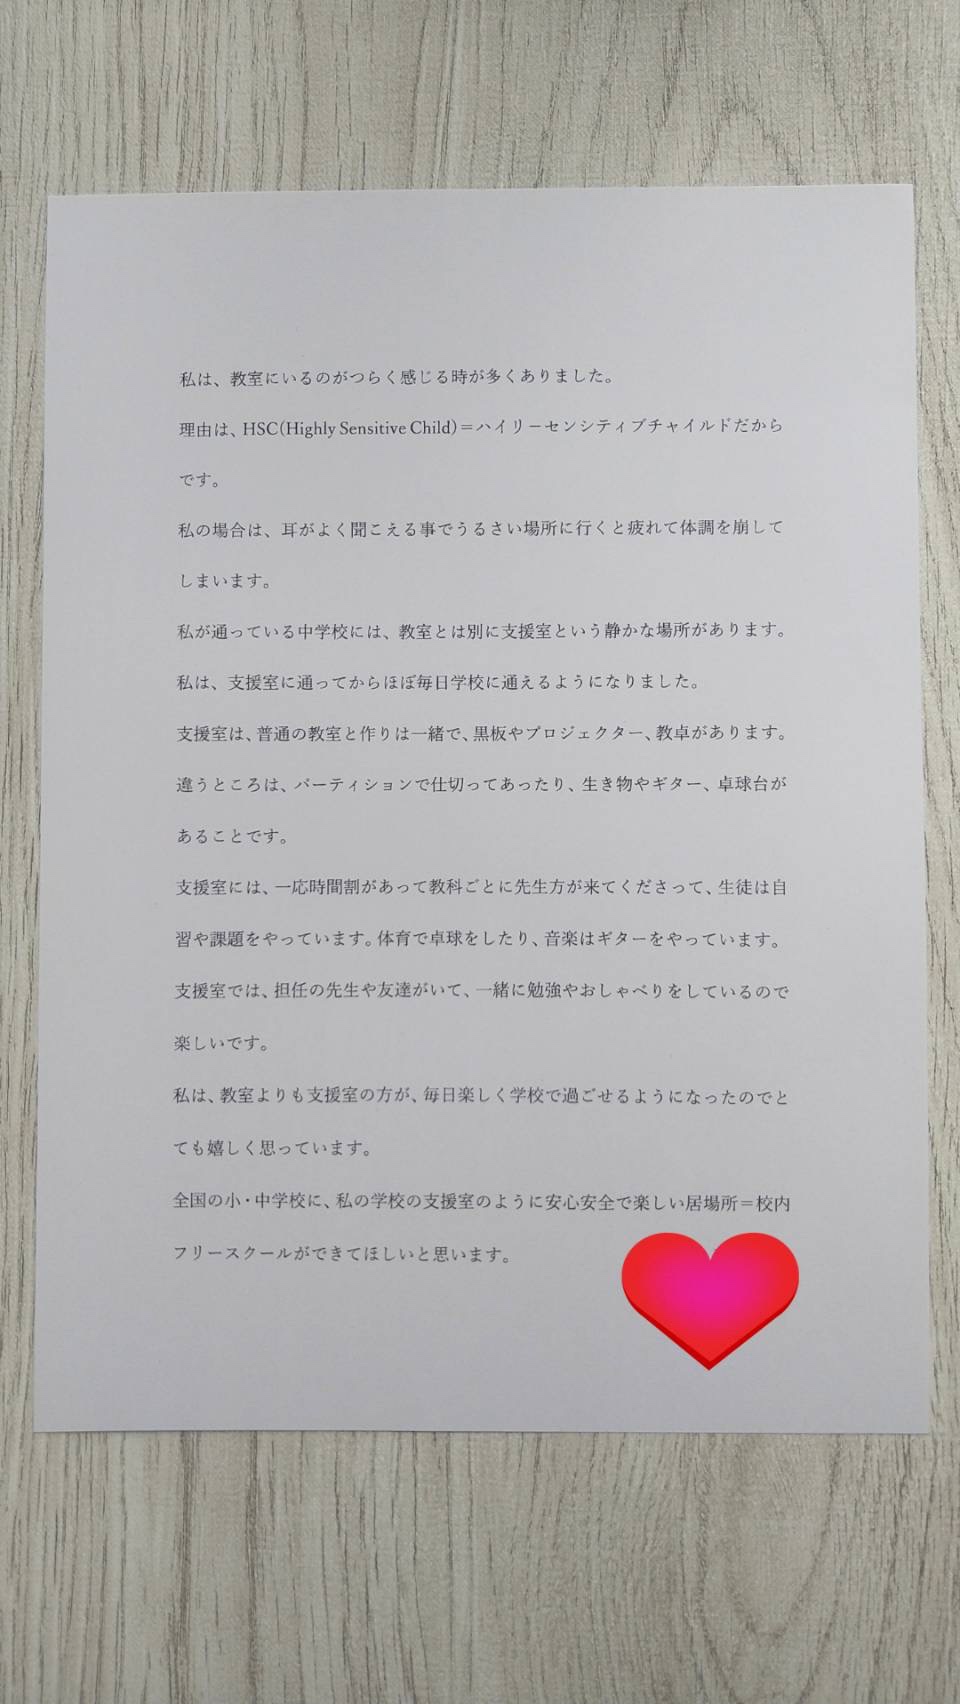 私は、教室にいるのがつらく感じる時が多くありました。
理由は、HSC(Highly Sensitive Child)＝ハイリーセンシティブチャイルドだから
です。
私の場合は、耳がよく聞こえる事でうるさい場所に行くと疲れて体調を崩して
しまいます。
私が通っている中学校には、教室とは別に支援室という静かな場所があります。
私は、支援室に通ってからほぼ毎日学校に通えるようになりました。
支援室は、普通の教室と作りは一緒で、黒板やプロジェクター、教卓があります。
違うところは、パーティションで仕切ってあったり、生き物やギター、卓球台が
あることです。
支援室には、一応時間割があって教科ごとに先生方が来てくださって、生徒は自
習や課題をやっています。体育で卓球をしたり、音楽はギターをやっています。
支援室では、担任の先生や友達がいて、一緒に勉強やおしゃべりをしているので
楽しいです。
私は、教室よりも支援室の方が、毎日楽しく学校で過ごせるようになったのでと
ても嬉しく思っています。
全国の小・中学校に、私の学校の支援室のように安心安全で楽しい居場所＝校内
フリースクールができてほしいと思います。